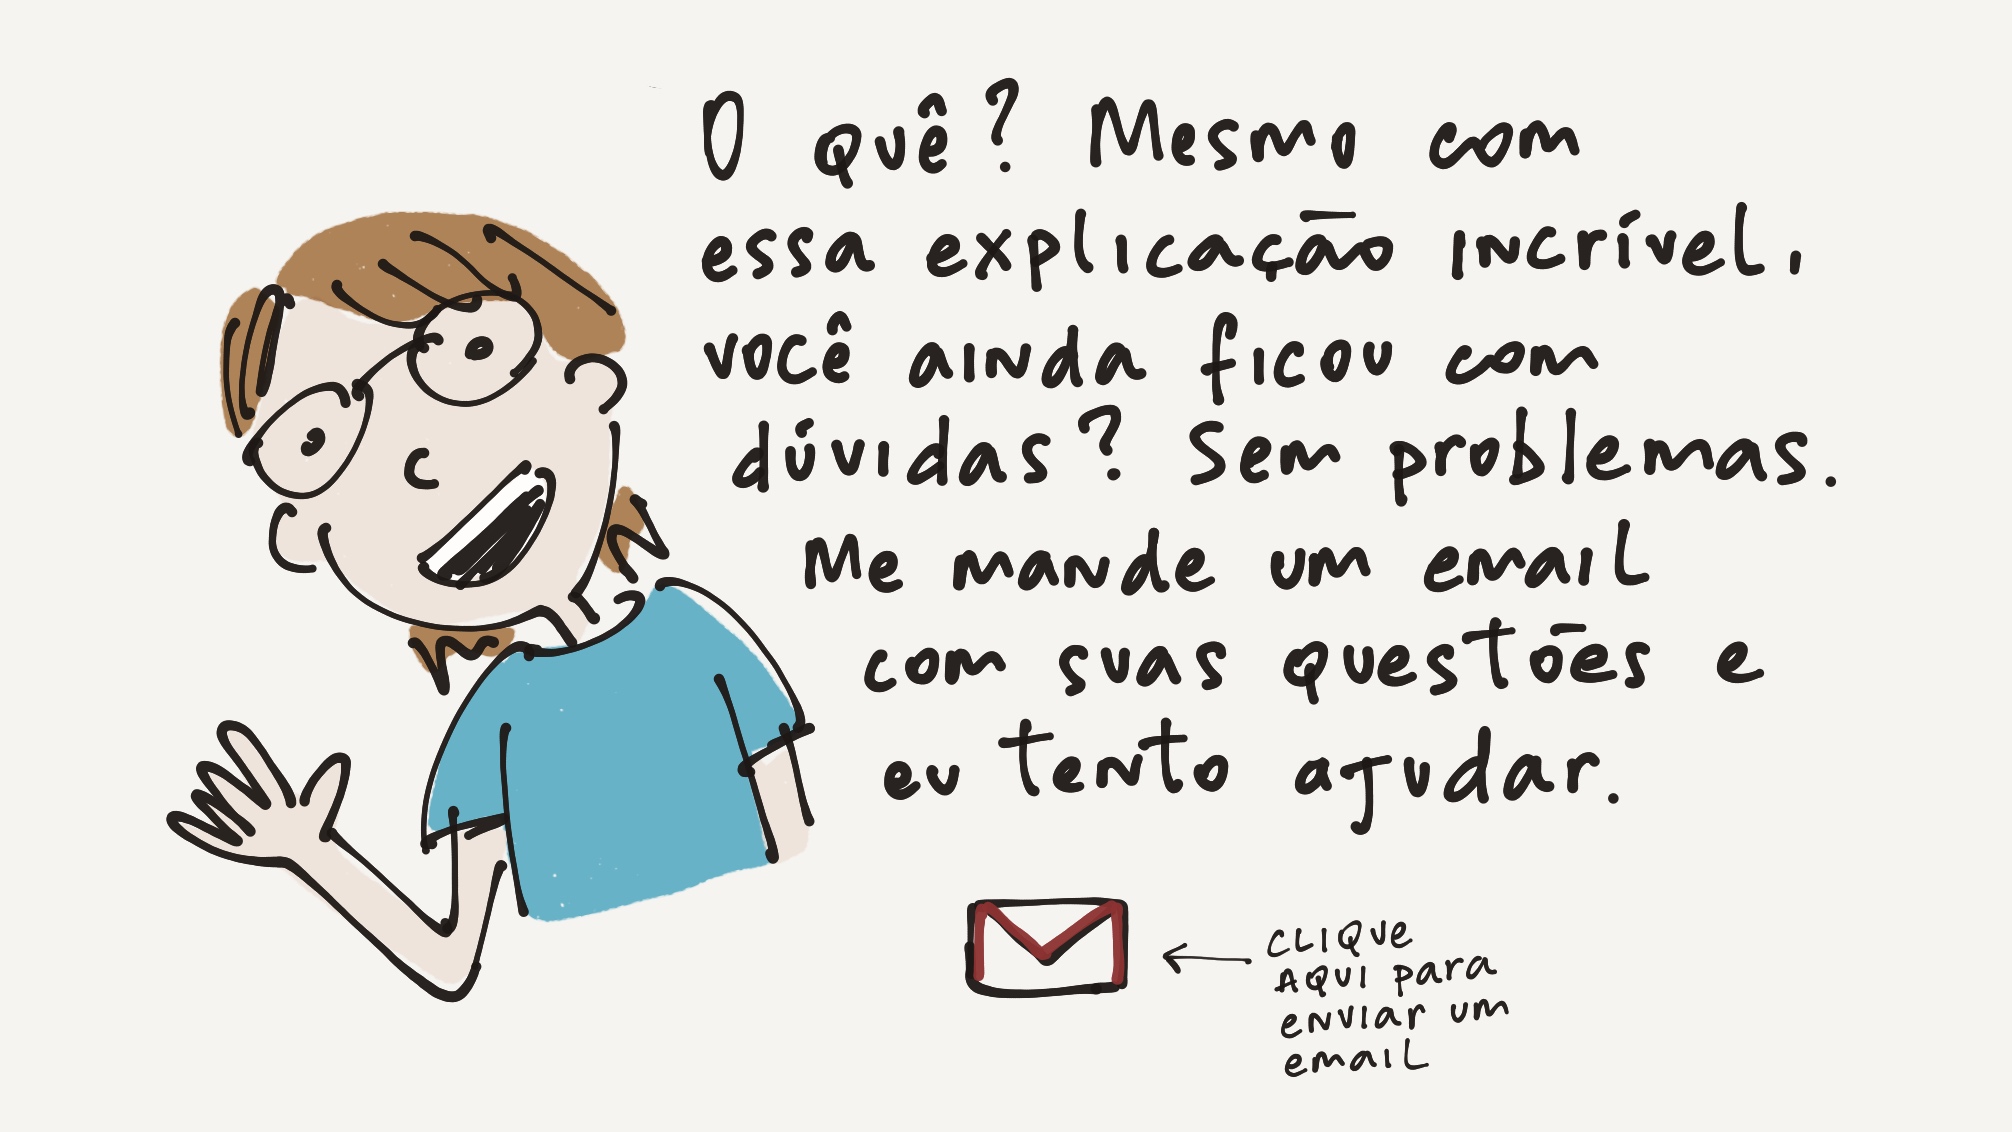 O quê? Mesmo com
essa explicação incrível,
você ainda ficou com
dúvidas? Sem problemas.
Me mande um email
com suas questões e
eu tento ajudar.
CLIQUE
AQUI para
enviar um
email